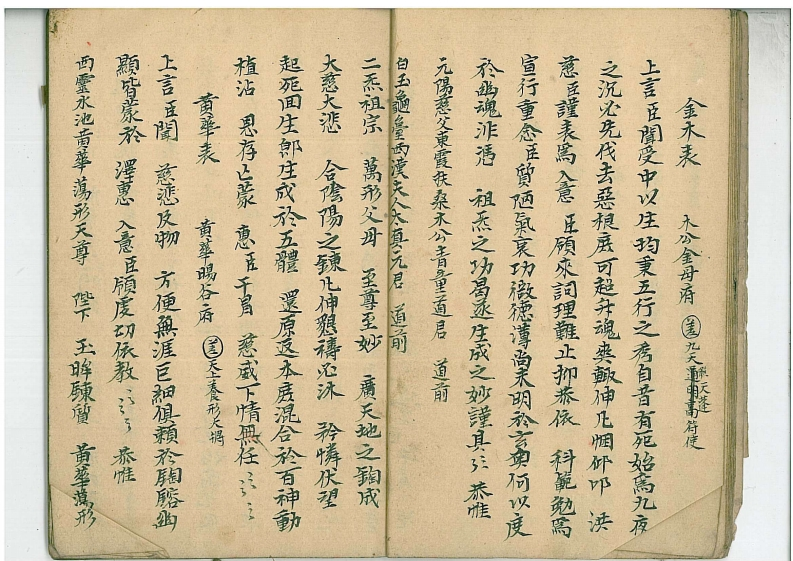 金木表　木公金母府　差九天道明蕭符使
上言臣聞受中以生均秉五行之秀自昔有死始為九夜
之沉必先伐去惡根庶可超升魂爽輒伸凡悃仰叩　洪
慈臣謹表為入意　臣領來詞理難止抑恭依　科範勉為
宣行重念臣質陋氣衰功微德薄尚未明於玄奧何以度
於幽魂非馮　祖炁之功曷遂生成之妙謹具　恭惟
元陽慈父東霞扶桑木公青童道君　道前
白玉龜臺西漢夫人太真元君　道前
二炁祖宗　萬形父母　至尊至妙　廣天地之鈞成
大慈大悲　合陰陽之鍊凡伸懇禱必沐　矜憐伏望
起死回生郎生成於五體　還原返本庶混合於百神動
植沾　恩存亡蒙　惠臣干冒　慈威下情無任
黃華表　黃華暘谷府　差天士養形大將
上言臣聞　慈悲及物　方便無涯巨細俱賴於陶鎔幽
顯皆蒙於　澤惠　入意臣領虔切依教　恭惟
西靈水池黃華蕩形天尊　陛下　玉眸鍊質　黃華蕩形